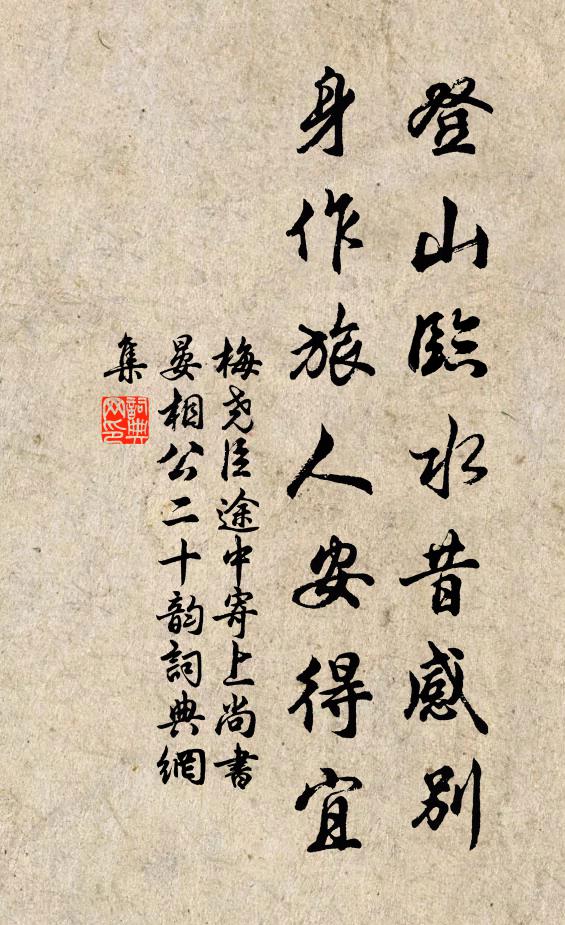 登山臨水昔感别
身作旅人安得宜
梅尧臣途中寄上尚書
晏相公二十韵詞典網
集
詞典
网印